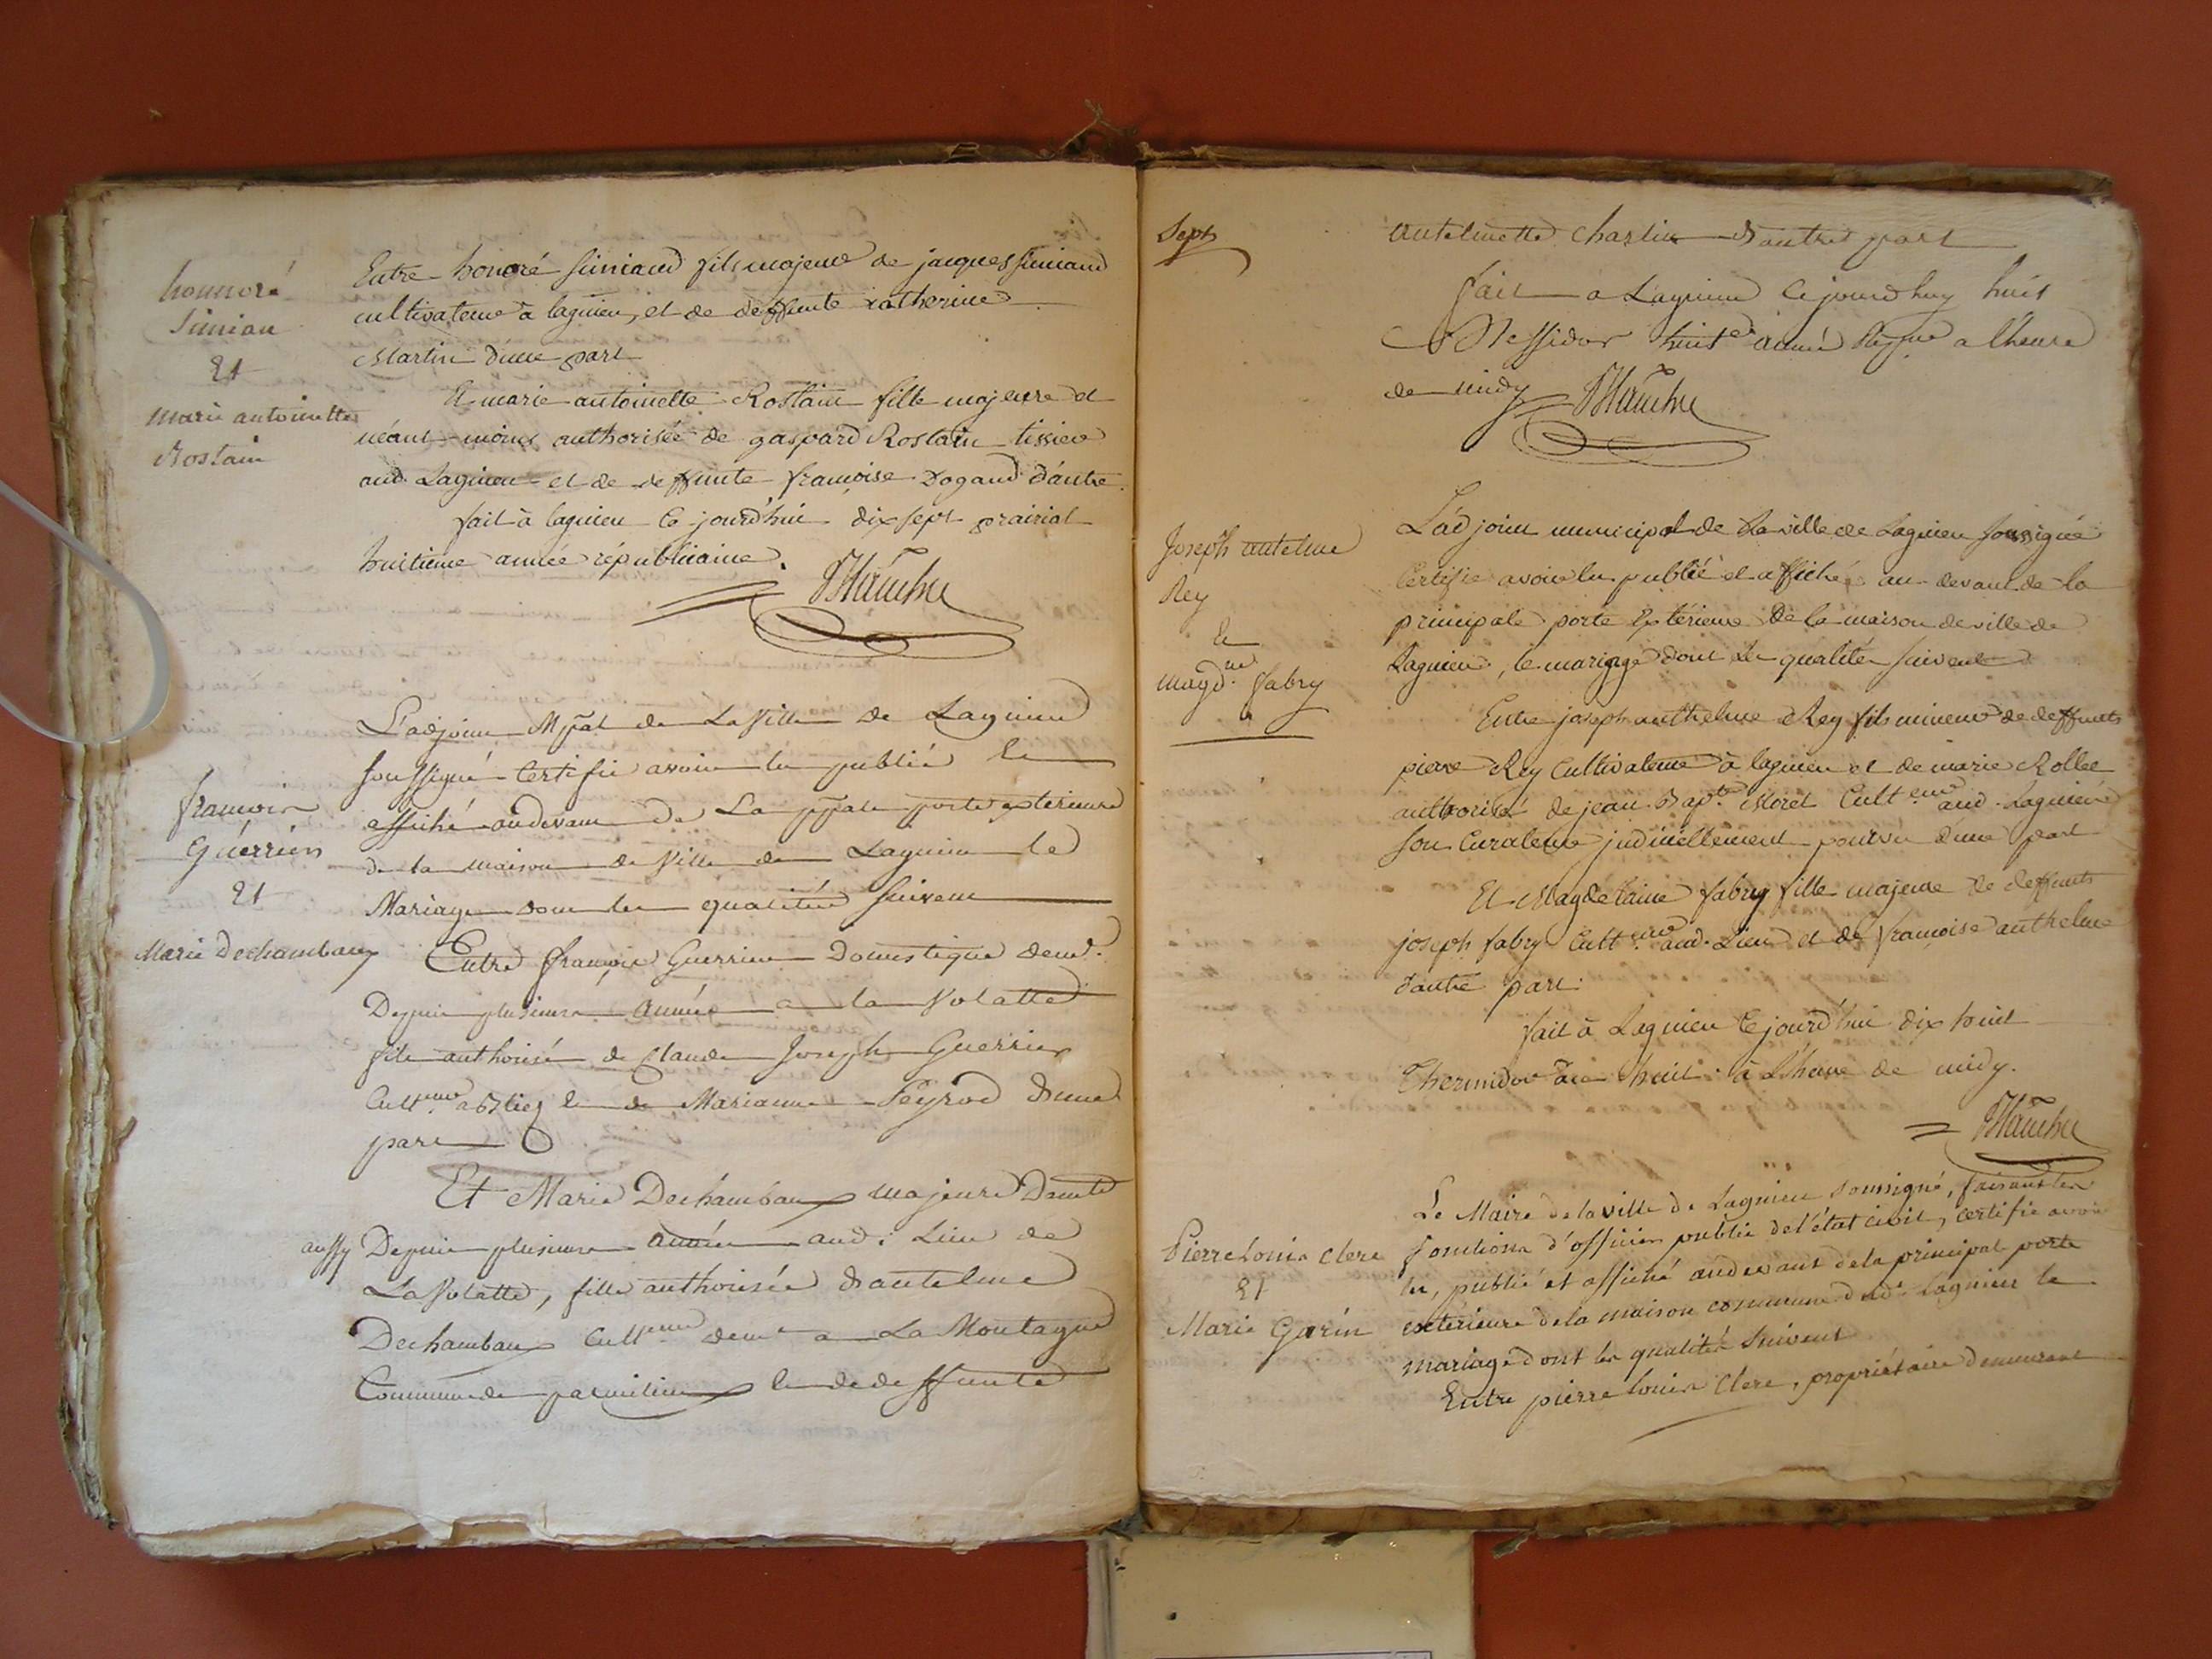 honnoré
Simian
Et
marie antoinette
Rostain
Entre honoré Simiand fils majeur de jacques Simiand
cultivateur à lagnieu, et de deffunte Catherine
Martin d'une part
Et marie antoinette Rostain fille majeure et
néant-moins authorisée de gaspard Rostain tissier
aud. Lagnieu et de deffunte françoise Dogand d'autre.
fait à lagnieu ce jourd'hui dix sept prairial
huitieme année républicaine.
françois
Guérrier
Et
Marie Dechambaux
L'adjoint Mpal de La Ville de Lagnieu
soussigné Certifie avoir lu publié et
affiché audevant de La ppale porte exterieure
de la maison de Ville de Lagnieu le
Mariage dont les qualités suivent
Entre françois Guerrier Domestique demt
Depuis plusieurs année a la Volatte
fils authorisé de Claude Joseph Guerrier
Culteur a et de Marianne Peyrod d'une
part
Et Marie Dechambaux majeure Demte
aussy Depuis plusieurs année aud. Lieu de
La Volatte, fille authorisée d'antelme
Dechambaux Culteur demt a La Montagne
Commune de parmilieux et de deffunte
Sept
antelmette Charlin d'autre part
fait a Lagnieu Cejourdhuy huit
Messidor huite année Repque a l'heure
de midy
Joseph antelme
Rey
Et
magdne fabry
L'adjoint municipal de La ville de Lagnieu soussigné
Certifie avoir lu publié et affiché au devant de la
principale porte Extérieure de la maison de ville de
Lagnieu, le mariage dont les qualités suivent
Entre joseph anthelme Rey fils mineur de deffunts
pierre Rey Cultivateur à lagnieu et de marie Rollet
authorisé de jean Bapte Moret Culteur aud. Lagnieu
son Curateur judiciellement pourvu d'une part
Et Magdelaine fabry fille majeure de deffunts
joseph fabry Culteur aud. Lieu et de françoise anthelme
d'autre part.
fait à Lagnieu Cejourd'hui dix huit
Thermidor an huit à L'heure de midy.
Pierre Louis Clerc
Et
Marie Garin
Le Maire de la ville de Lagnieu soussigné, faisant les
fonctions d'officier public de l'état civil, certifie avoir
lu, publié et affiché audevant de la principal porte
extérieure de la maison commune dudt Lagnieu le
mariage dont les qualités suivent
Entre pierre louis Clerc, propriétaire demeurant